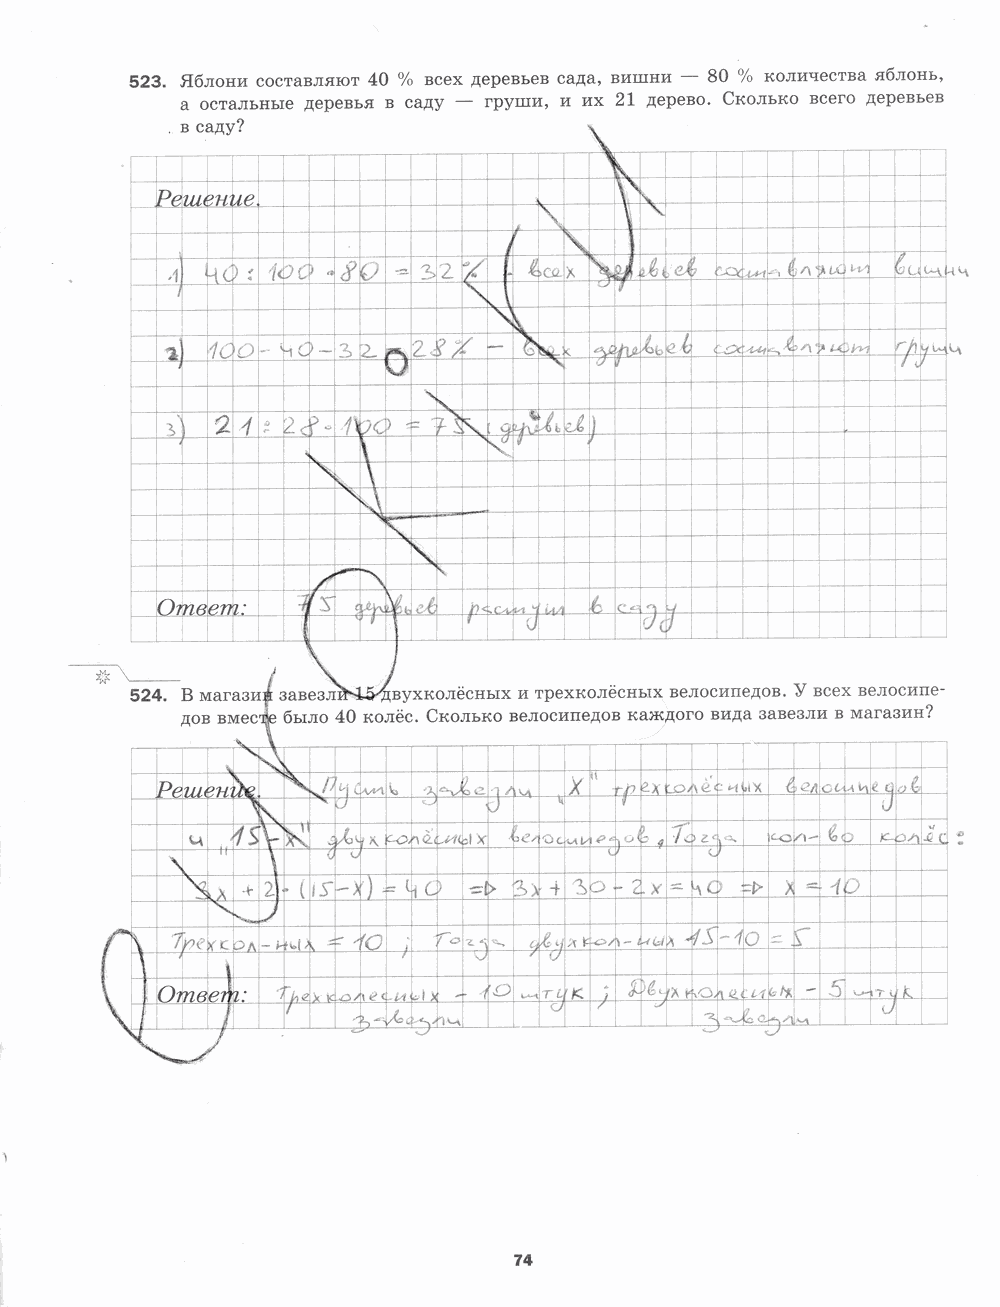 523. Яблони составляют 40 % всех деревьев сада, вишни — 80 % количества яблонь,
а остальные деревья в саду — груши, и их 21 дерево. Сколько всего деревьев
в саду?
Решение.
1) 40 : 100 · 80 = 32% - всех деревьев составляют вишни
2) 100 - 40 - 32 = 28% - всех деревьев составляют груши
3) 21 : 28 · 100 = 75 (деревьев)
Ответ: 75 деревьев растут в саду
524. В магазин завезли 15 двухколёсных и трехколёсных велосипедов. У всех велосипе-
дов вместе было 40 колёс. Сколько велосипедов каждого вида завезли в магазин?
Решение. Пусть завезли „X" трехколёсных велосипедов
и „15-x" двухколёсных велосипедов. Тогда кол-во колёс:
3x + 2 · (15-x) = 40 => 3x + 30 - 2x = 40 => x = 10
Трехкол-ных = 10 ; Тогда двухкол-ных 15-10 = 5
Ответ: Трехколесных - 10 штук ; Двухколесных - 5 штук
завезли завезли
74